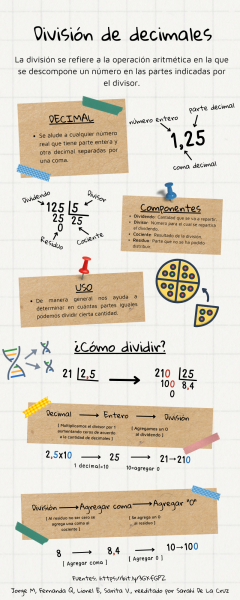 División de decimales
La división se refiere a la operación aritmética en la que
se descompone un número en las partes indicadas por
el divisor.
DECIMAL
Se alude a cualquier número
real que tiene parte entera y
otra decimal separadas por
una coma.
número entero
parte decimal
1,25
coma decimal
Dividendo
Divisor
125 |5
25 25
0
Residuo
Cociente
Componentes
Dividendo: Cantidad que se va a repartir.
Divisor: Número para el cual se repartirá
el dividendo.
Cociente: Resultado de la división.
Residuo: Parte que no se ha podido
distribuir.
USO
De manera general nos ayuda a
determinar en cuántas partes iguales
podemos dividir cierta cantidad.
¿Cómo dividir?
21 |2,5
210 |25
100 8,4
0
Decimal → Entero → División
[ Multiplicamos al divisor por 1
aumentando ceros de acuerdo
a la cantidad de decimales ]
[ Agregamos un 0
al dividendo ]
2,5x10 → 25 → 21→210
1 decimal=10
10=agregar 0
División → Agregar coma → Agregar "0"
[ Al residuo no ser cero se
agrega una coma al
cociente ]
[ Se agrega un 0
al residuo ]
8 → 8,4 → 10→100
[ Agregar coma ]
[ Agregar 0 ]
Jorge M, Fernanda Q, Lionel B, Sarita V, reeditado por Sanahi De La Cruz